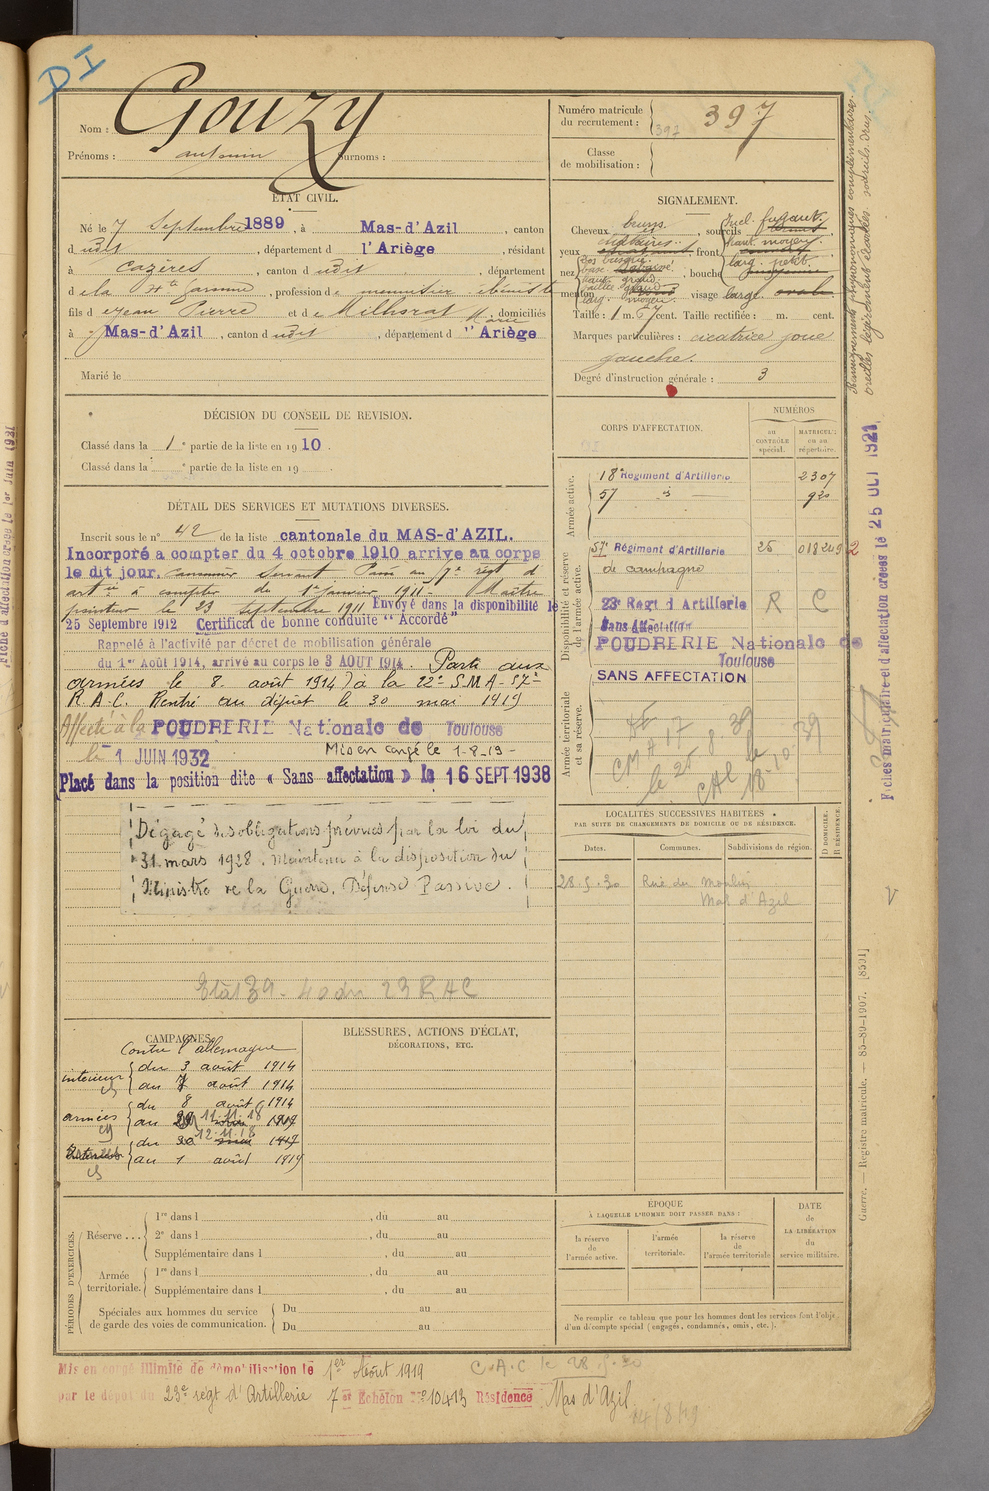 DI
Nom : Gouzy
Prénoms : antonin Surnoms :
Numéro matricule du recrutement : 397
397
Classe de mobilisation :
ÉTAT CIVIL.
Né le 7 Septembre 1889, à Mas-d'Azil, canton
dudit, département d l'Ariège, résidant
à Cazères, canton dudit, département
d ela Hte Garonne, profession de menuisier ébéniste
fils de Jean Pierre et de Milhorat Marie, domiciliés
à Mas-d'Azil, canton dudit, département d" Ariège
Marié le
SIGNALEMENT.
Cheveux bruns, sourcils
yeux front
nez bouche
menton visage large ovale
Taille : 1 m. 67 cent. Taille rectifiée : m. cent.
Marques particulières : cicatrice joue
gauche.
Degré d'instruction générale : 3
DÉCISION DU CONSEIL DE REVISION.
Classé dans la 1e partie de la liste en 1910.
Classé dans la e partie de la liste en 19
DÉTAIL DES SERVICES ET MUTATIONS DIVERSES.
Inscrit sous le n° 42 de la liste cantonale du MAS-d'AZIL.
Incorporé a compter du 4 octobre 1910 arrive au corps
le dit jour, canonnier servant Passé au 57e régt d
artie à compter du 1er janvier 1911 - Maître
pointeur le 23 septembre 1911 Envoyé dans la disponibilité le
25 Septembre 1912 Certificat de bonne conduite "Accordé"
Rappelé à l'activité par décret de mobilisation générale
du 1er Août 1914, arrivé au corps le 3 AOUT 1914. Parti aux
armées le 8 août 1914 à la 22e S.M.A - 57e
R.A.C. Rentré au dépôt le 30 mai 1919
Affecté à la POUDRERIE Nationale de Toulouse
le 1 JUIN 1932 Mis en congé le 1-8-19 -
Placé dans la position dite « Sans affectation » le 16 SEPT 1938
Dégagé des obligations prévues par la loi du
31 mars 1928. Maintenu à la disposition du
Ministre de la Guerre, Défense Passive.
Etat 39-40 du 23 RAC
CORPS D'AFFECTATION.
NUMÉROS
au CONTRÔLE spécial.
MATRICULE ou au répertoire.
Armée active.
18e Régiment d'Artillerie 2307
57 d° 920
Disponibilité et réserve de l'armée active.
57e Régiment d'Artillerie 25 018249 2
de campagne
23e Regt d Artillerie R C
Sans Affectation
POUDRERIE Nationale de
Toulouse
SANS AFFECTATION
Armée territoriale et sa réserve.
CMA 17
le 25.8.39
CAL le
18-10-39
LOCALITÉS SUCCESSIVES HABITÉES
PAR SUITE DE CHANGEMENTS DE DOMICILE OU DE RÉSIDENCE.
D DOMICILE.
R RÉSIDENCE.
Dates. Communes. Subdivisions de région.
28.5.30 Rue du Moulin
Mas d'Azil
CAMPAGNES.
Contre l'allemagne
intérieur CS du 3 août 1914
au 7 août 1914
armées CS du 8 août 1914
au 11.11.18
du 12.11.18
CS au 1 août 1919
BLESSURES, ACTIONS D'ÉCLAT,
DÉCORATIONS, ETC.
PÉRIODES D'EXERCICES.
Réserve ...
1re dans l , du au
2e dans l , du au
Supplémentaire dans l , du au
Armée territoriale.
1re dans l , du au
Supplémentaire dans l , du au
Spéciales aux hommes du service
de garde des voies de communication.
Du au
Du au
ÉPOQUE
À LAQUELLE L'HOMME DOIT PASSER DANS :
la réserve de l'armée active.
l'armée territoriale.
la réserve de l'armée territoriale
DATE de LA LIBÉRATION du service militaire.
Ne remplir ce tableau que pour les hommes dont les services font l'objet
d'un décompte spécial (engagés, condamnés, omis, etc.).
Mis en congé illimité de démobilisation le 1er Août 1919
par le dépôt du 23e régt d'Artillerie 7e Echelon N° 10413 Résidence Mas d'Azil
C.A.C le 28.5.30
Renseignements physionomiques complémentaires:
Fiches matriculaire et d'affectation créées le 25 OCT 1921
Guerre. — Registre matricule. — 85-89-1907. [8501]